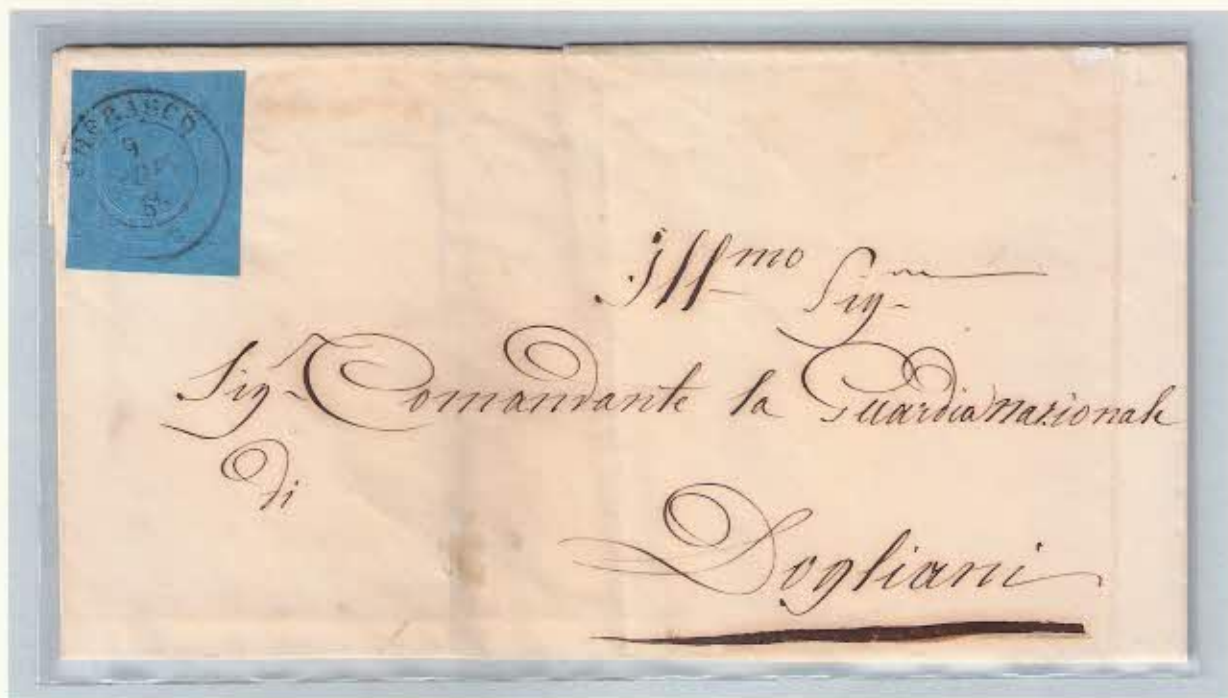 CHERASCO
9
Ill^mo Sig^re
Sig^r Comandante la Guardia nazionale
di
Dogliani